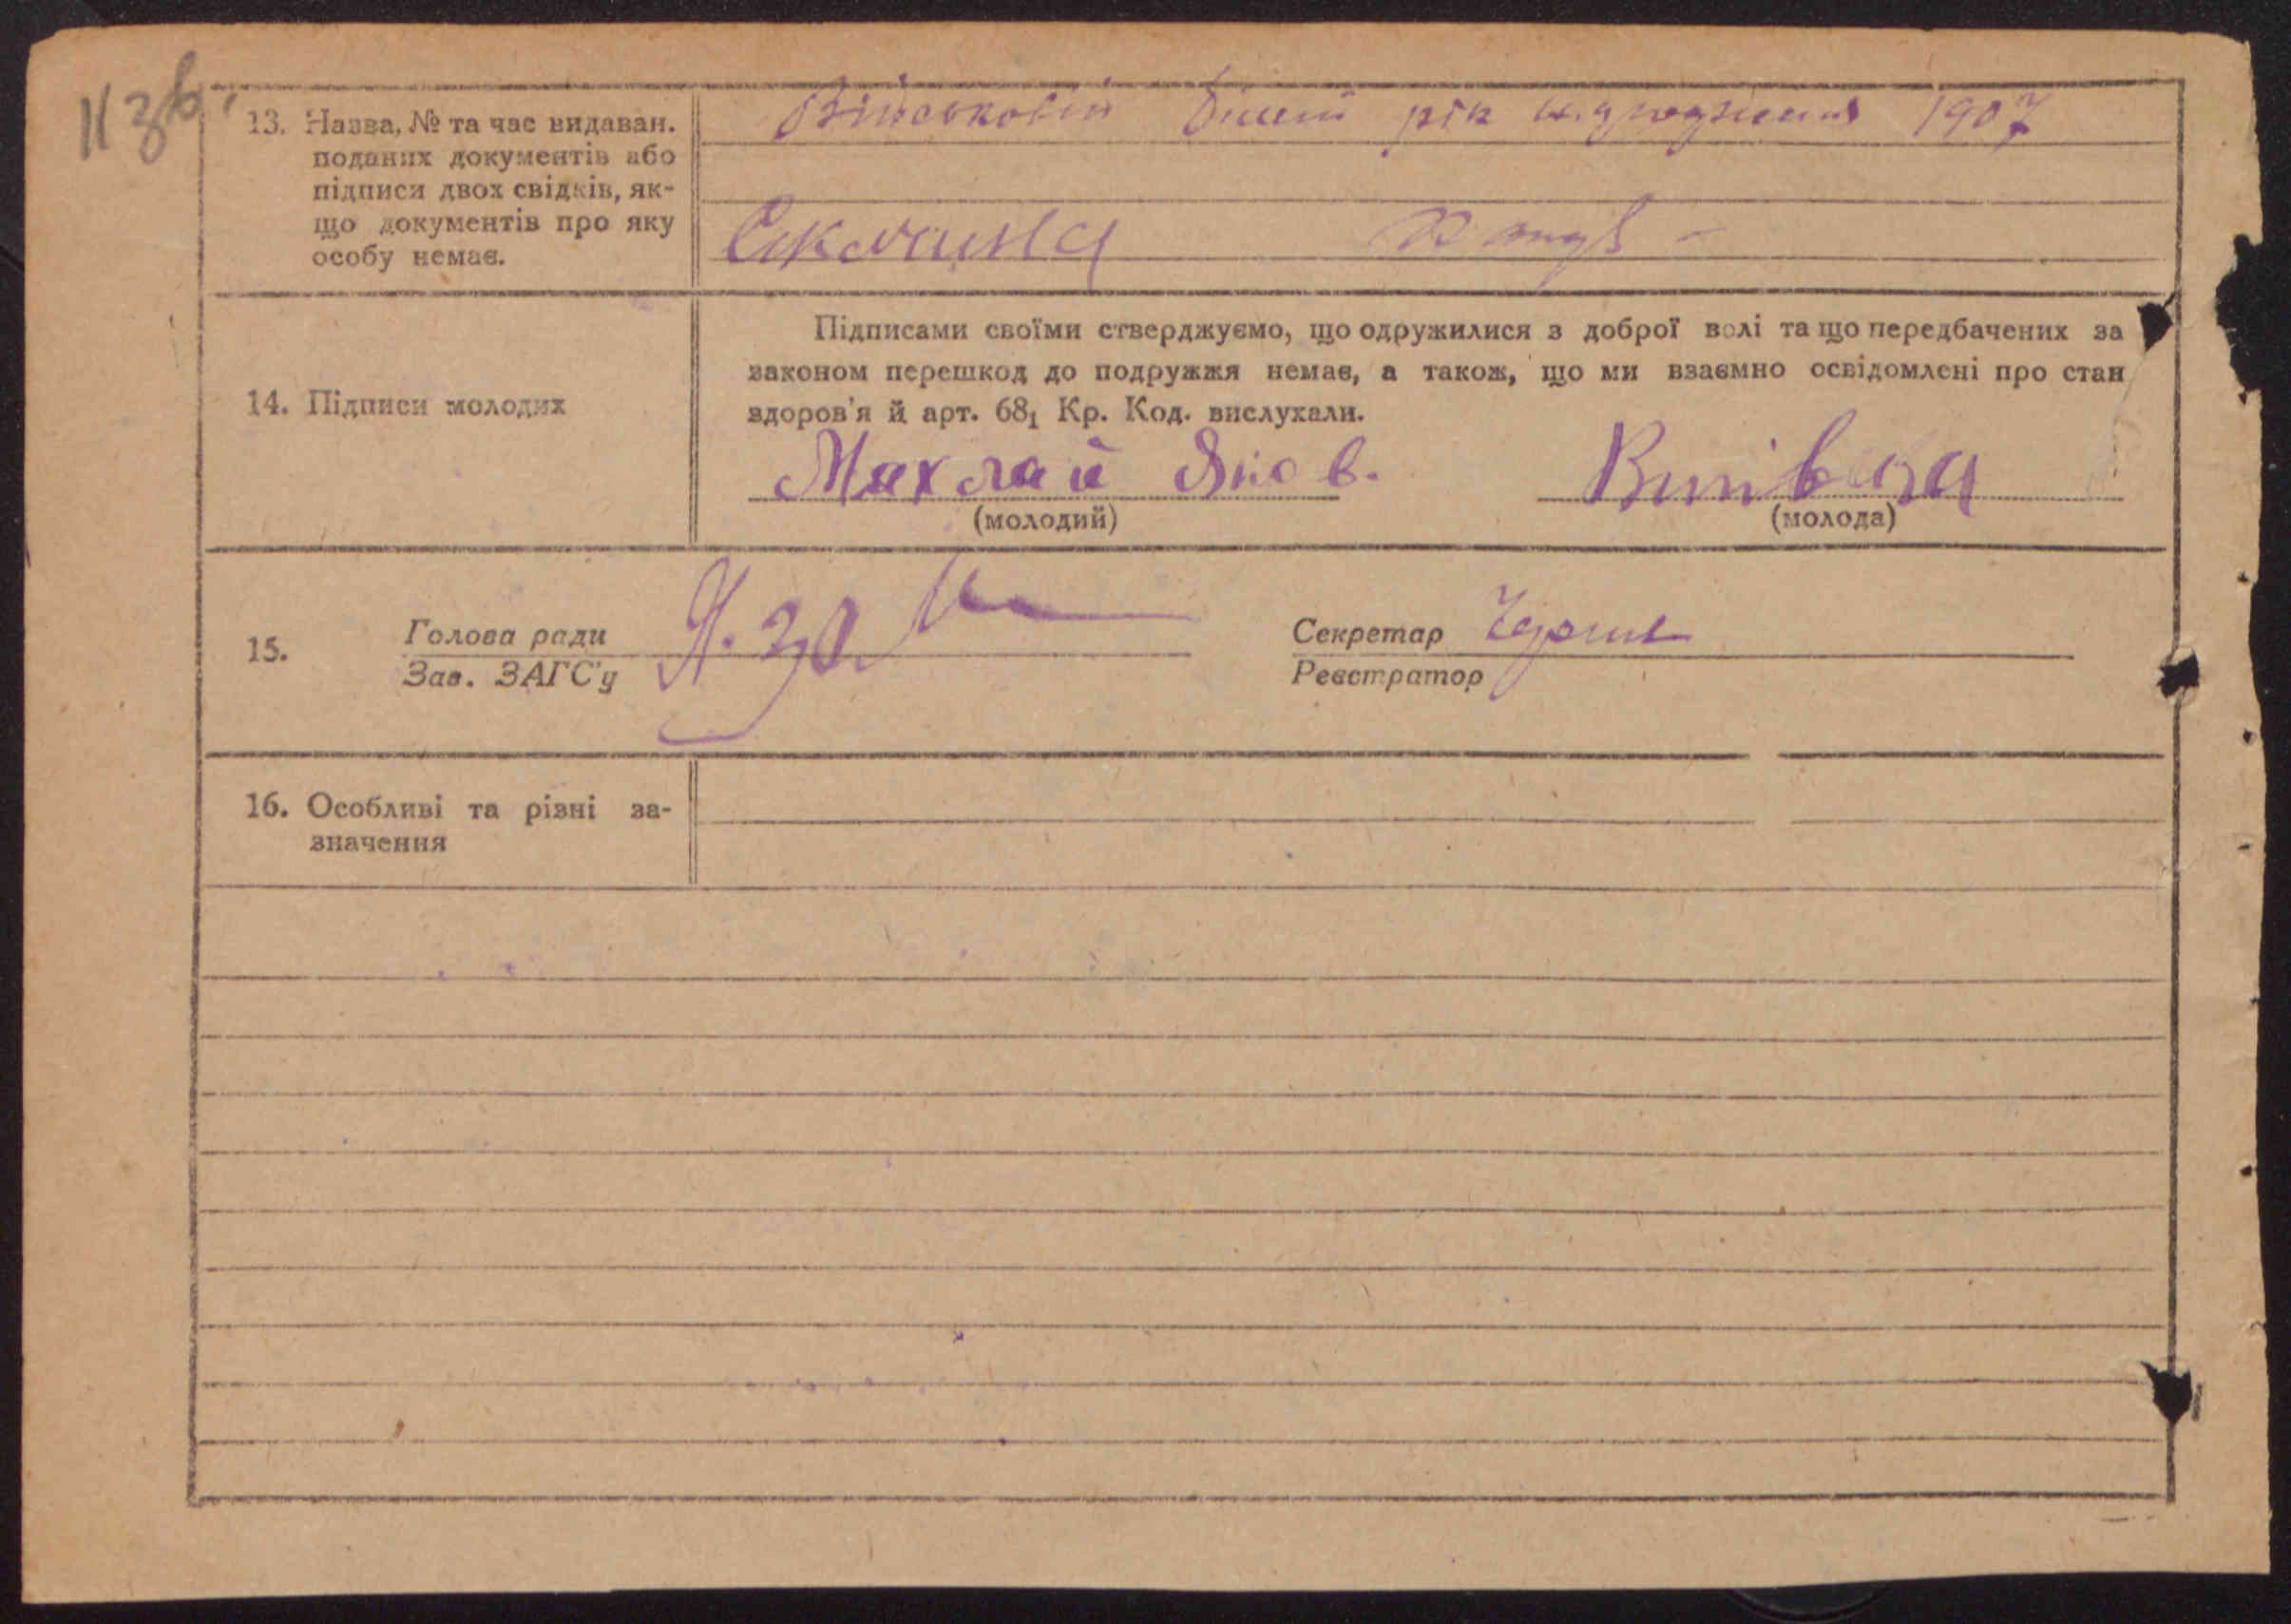 13. Назва, № та час видаван.
поданих документів або
підписи двох свідків, як-
що документів про яку
особу немає.
Військовий білет рік 1907
14. Підписи молодих
Підписами своїми стверджуємо, що одружилися з доброї волі та що передбачених за
законом перешкод до подружжя немає, а також, що ми взаємно освідомлені про стан
здоров'я й арт. 68₁ Кр. Код. вислухали.
Махлай Яков.
(молодий)
(молода)
15.
Голова ради
Зав. ЗАГС'у
Секретар
Реєстратор
16. Особливі та різні за-
значення